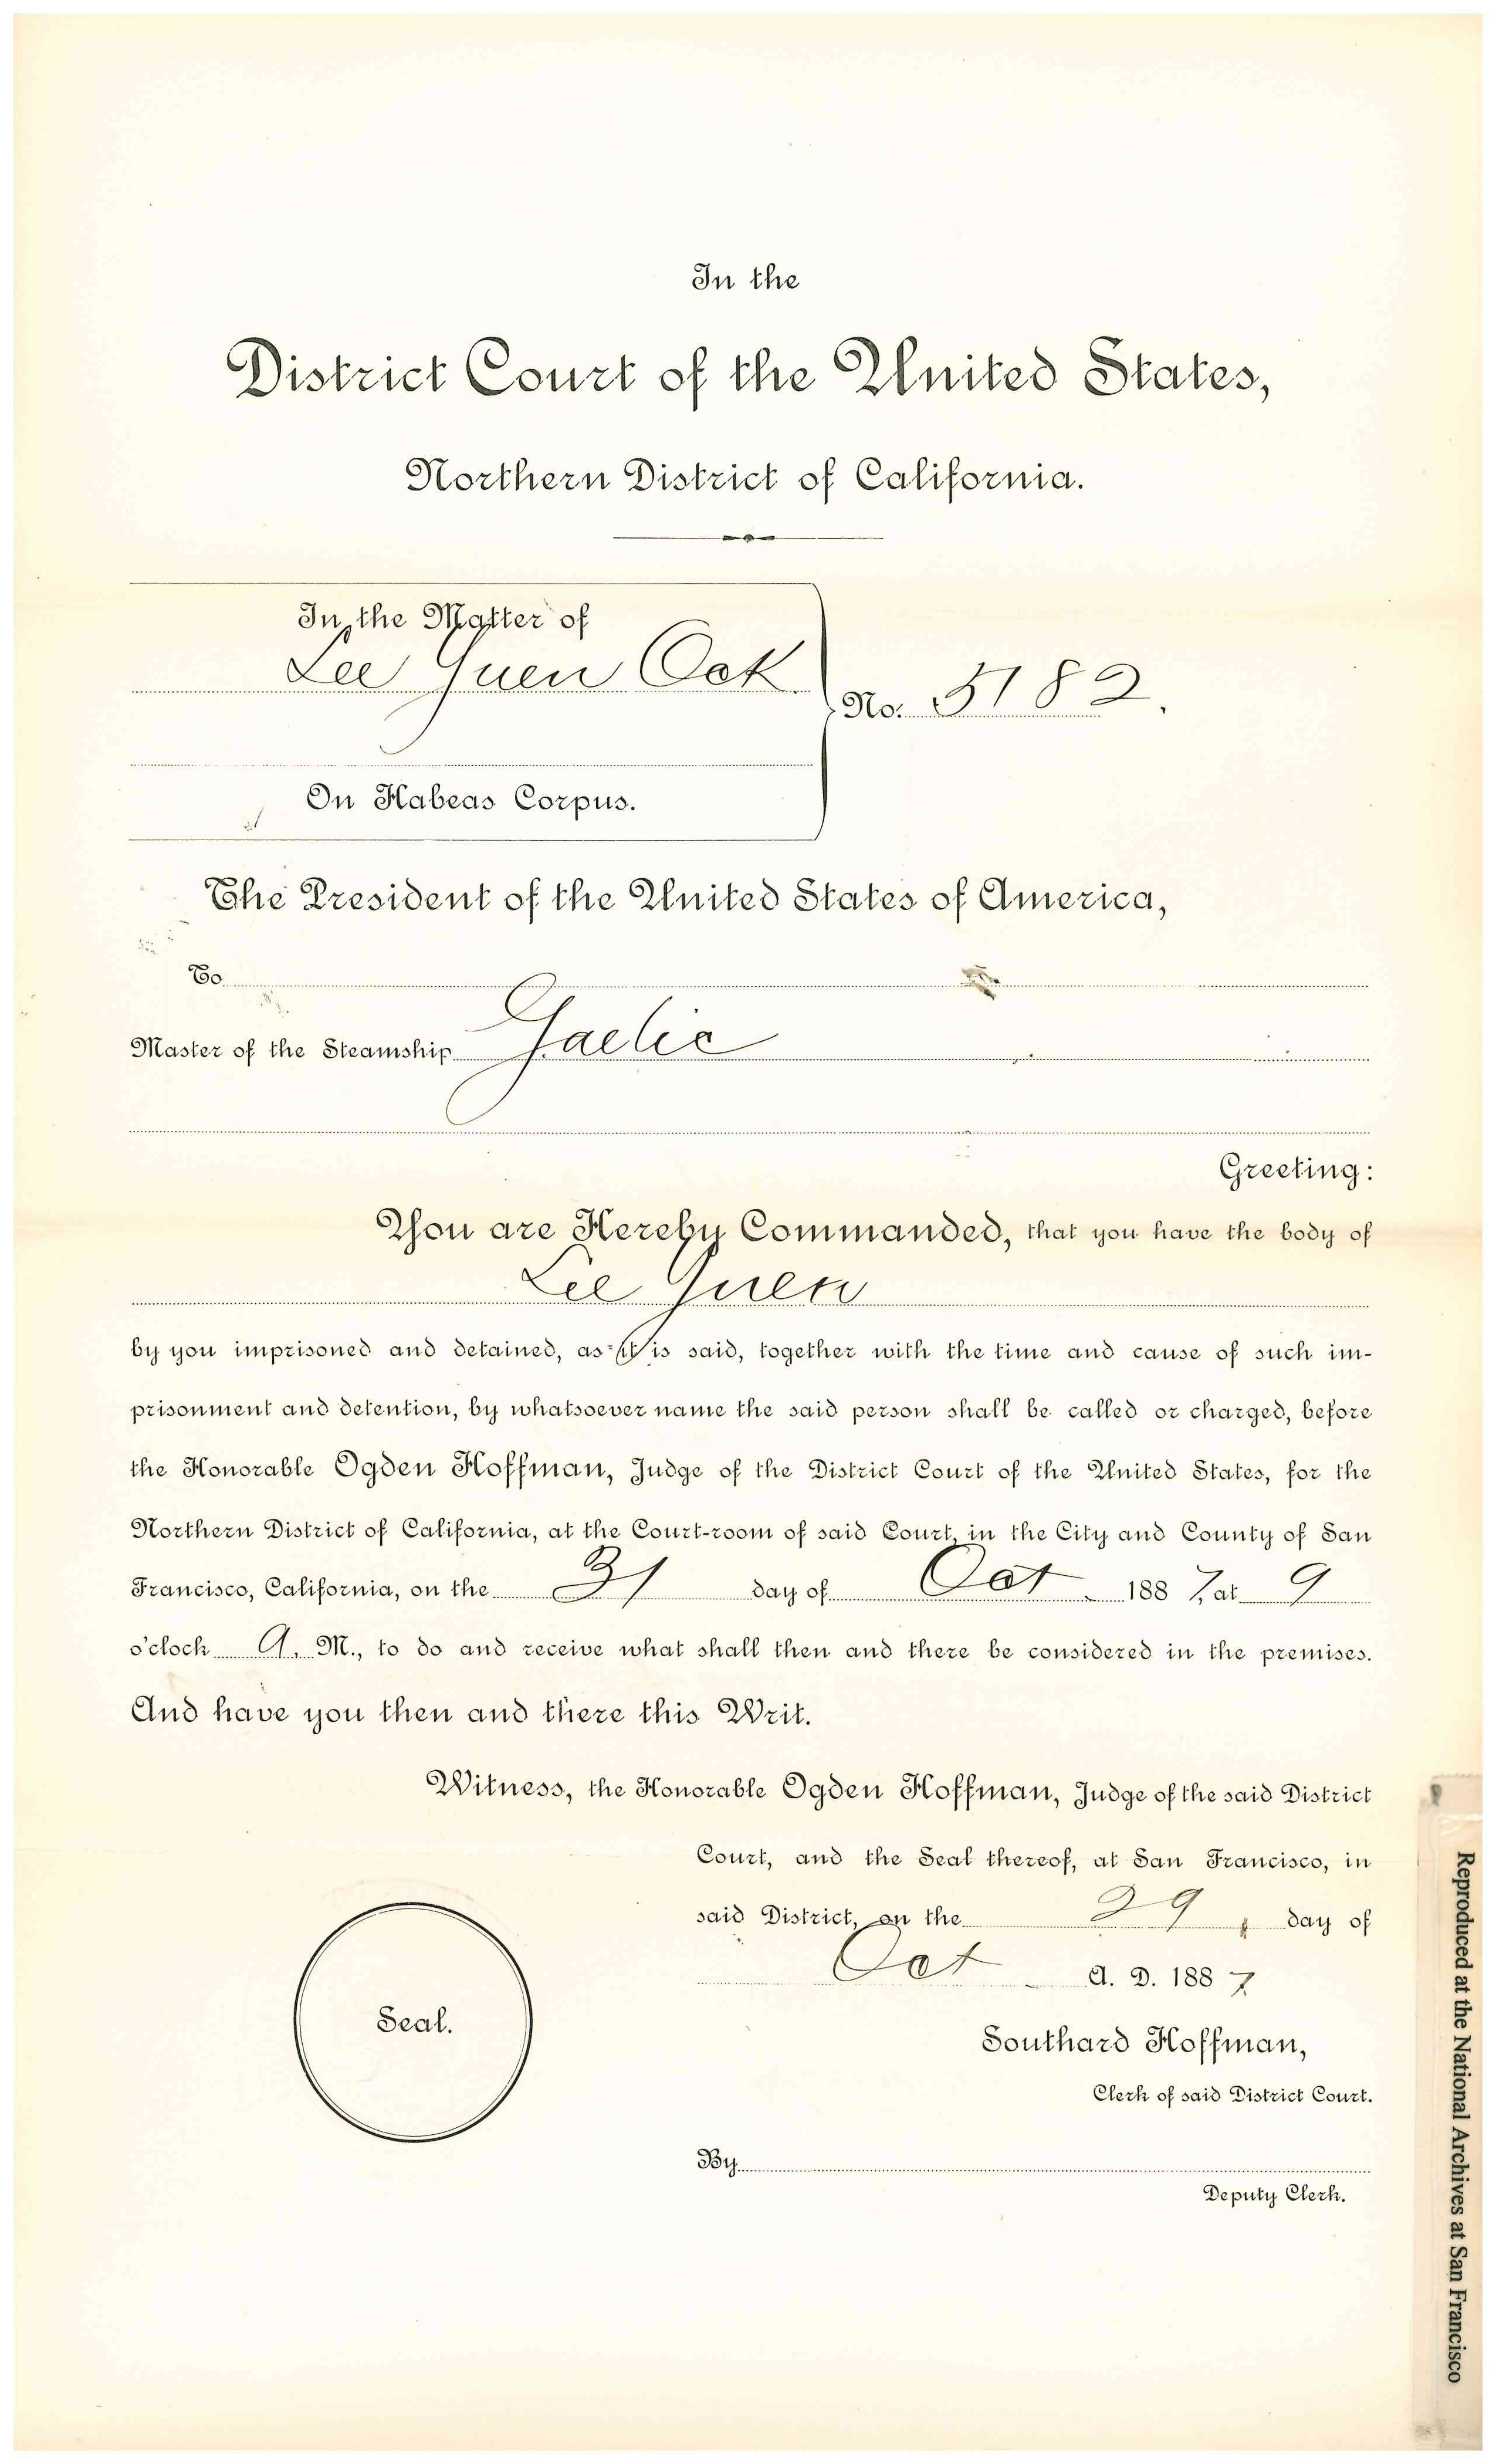 In the
District Court of the United States,
Northern District of California.
In the Matter of
Lee Guen Ock
No. 5182.
On Habeas Corpus.
The President of the United States of America,
To
Master of the Steamship Gaelic
Greeting:
You are Hereby Commanded, that you have the body of
Lee Guen
by you imprisoned and detained, as it is said, together with the time and cause of such im-
prisonment and detention, by whatsoever name the said person shall be called or charged, before
the Honorable Ogden Hoffman, Judge of the District Court of the United States, for the
Northern District of California, at the Court-room of said Court, in the City and County of San
Francisco, California, on the 31 day of Oct 1887, at 9
o'clock A. M., to do and receive what shall then and there be considered in the premises.
And have you then and there this Writ.
Witness, the Honorable Ogden Hoffman, Judge of the said District
Court, and the Seal thereof, at San Francisco, in
said District, on the 29, day of
Oct A. D. 1887
Seal.
Southard Hoffman,
Clerk of said District Court.
By
Deputy Clerk.
Reproduced at the National Archives at San Francisco